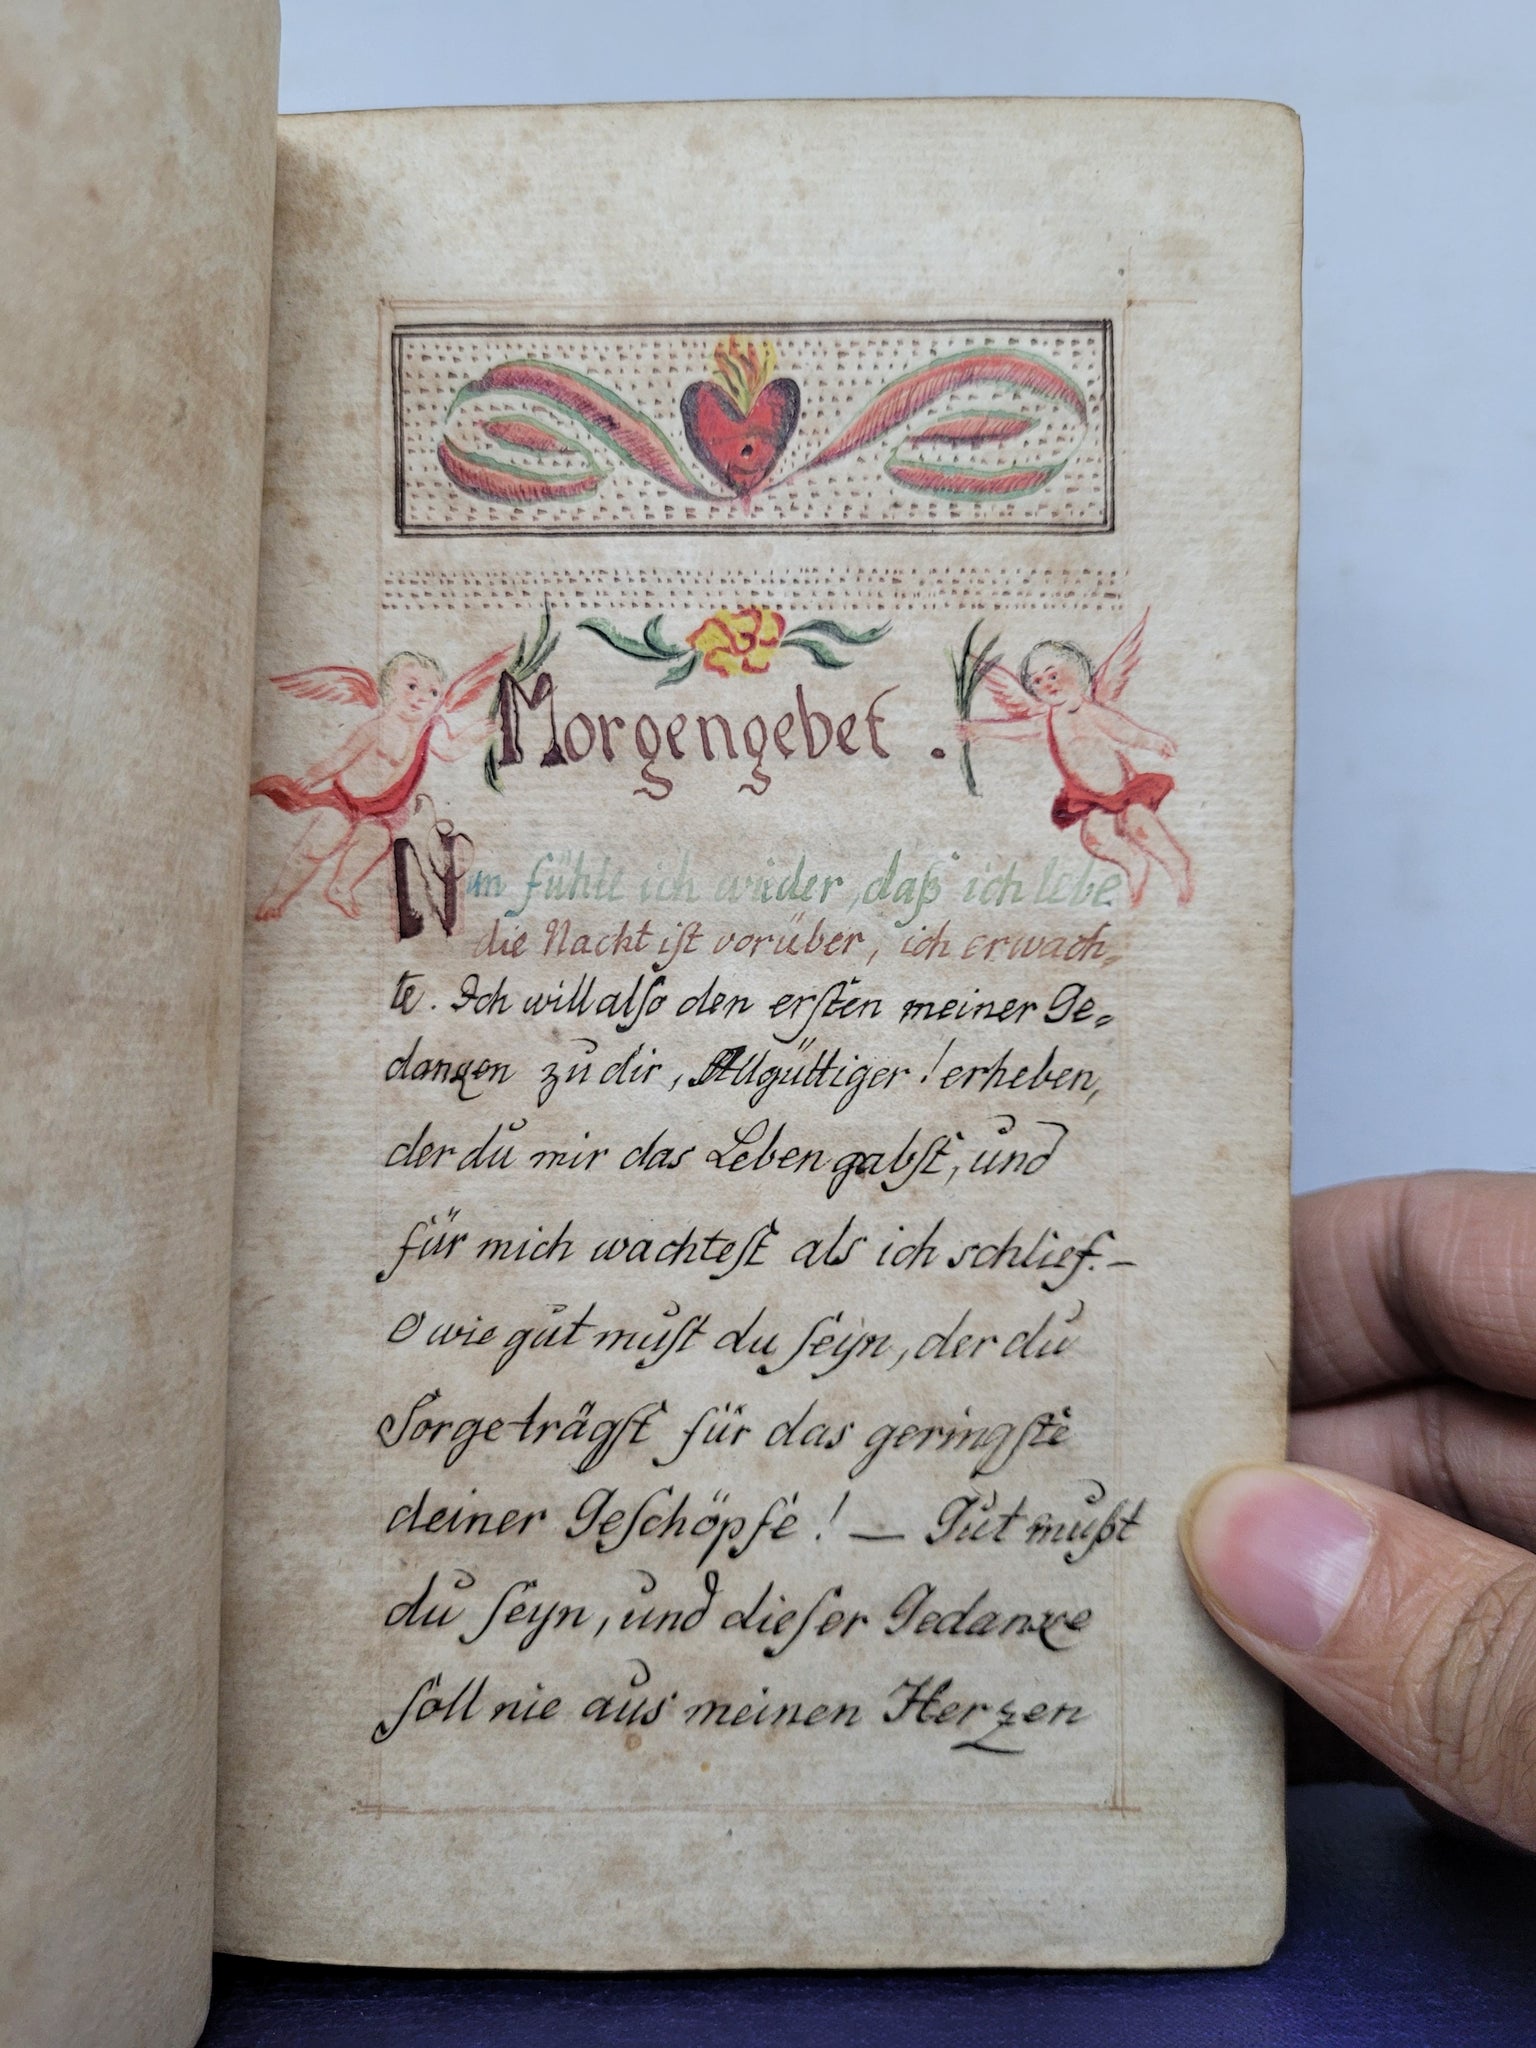 Morgengebet.
Nun fühle ich wieder, daß ich lebe
die Nacht iſt vorüber, ich erwach=
te. Ich will alſo den erſten meiner Ge=
danken zu dir, Allgüttiger! erheben,
der du mir das Leben gabſt, und
für mich wachteſt als ich schlief. –
O wie gut muſt du ſeyn, der du
Sorge trägſt für das geringſte
deiner Geſchöpfe! – Gut mußt
du ſeyn, und dieſer Gedanke
ſoll nie aus meinen Herzen